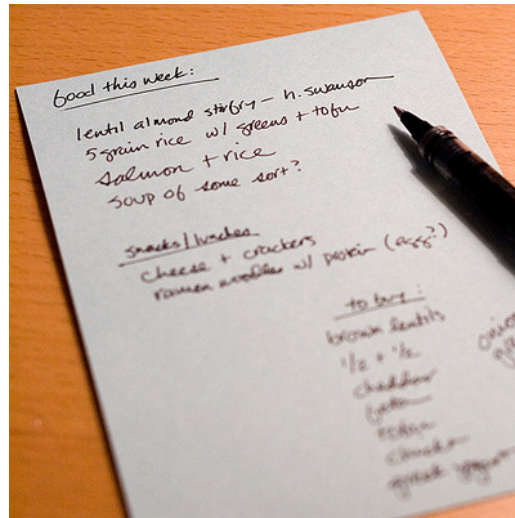 food this week:
lentil almond stirfry - h. swanson
5 grain rice w/ greens + tofu
salmon + rice
soup of some sort?
snacks/lunches
cheese + crackers
ramen noodles w/ protein (egg?)
to buy:
brown lentils
1/2 + 1/2
cheddar
tofu
greek yogurt